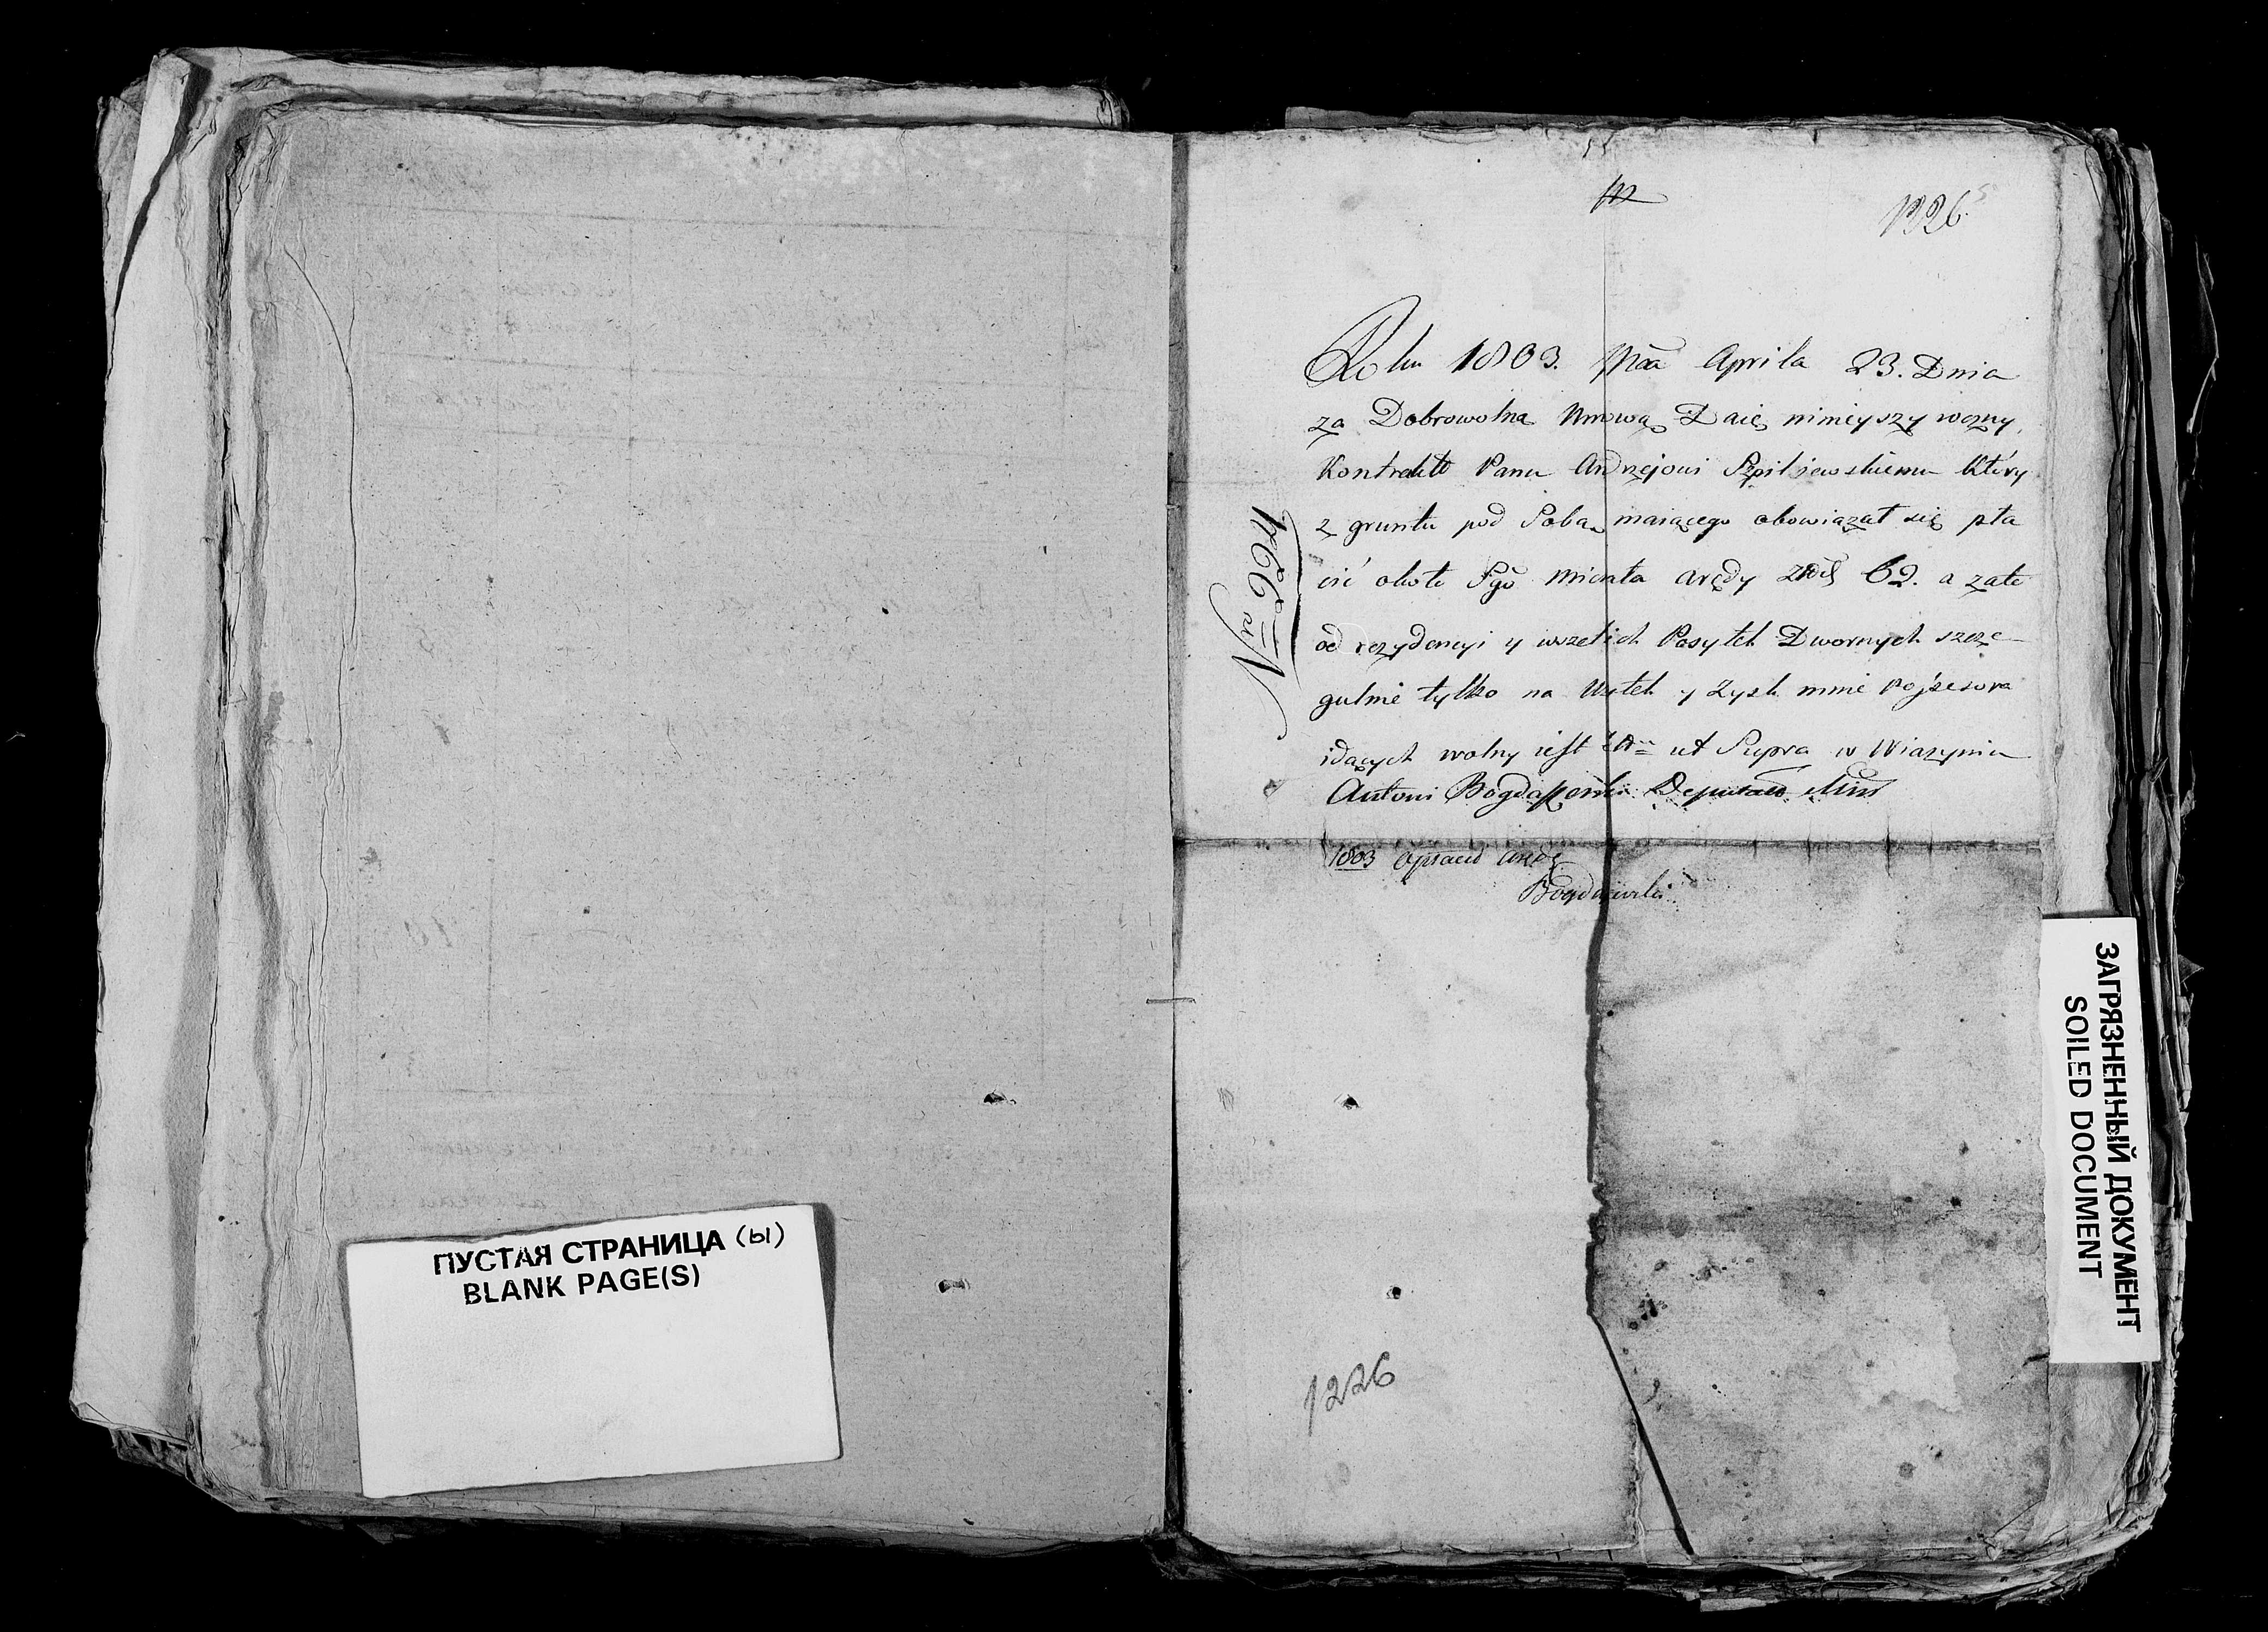 ПУСТАЯ СТРАНИЦА (ы)
BLANK PAGE(S)
1226
Roku 1803. Mca Aprila 23. Dnia
za Dobrowolną Umową Daię ninieyszy roczny
Kontrakt Panu Andrzejowi Szpilewskiemu który
z gruntu pod Sobą maiącego obowiązał się pła
cić około Sgo Michała arędy 62. a zato
od rezydencyi y wszelich Posyłek Dwornych szcze
gulnie tylko na Użytek y Zysk mnie Pojsesora
idących wolny iest ut Supra w Wiazyniu
Antoni Deputat Min
1803 opłacił arędę
1226
ЗАГРЯЗНЕННЫЙ ДОКУМЕНТ
SOILED DOCUMENT